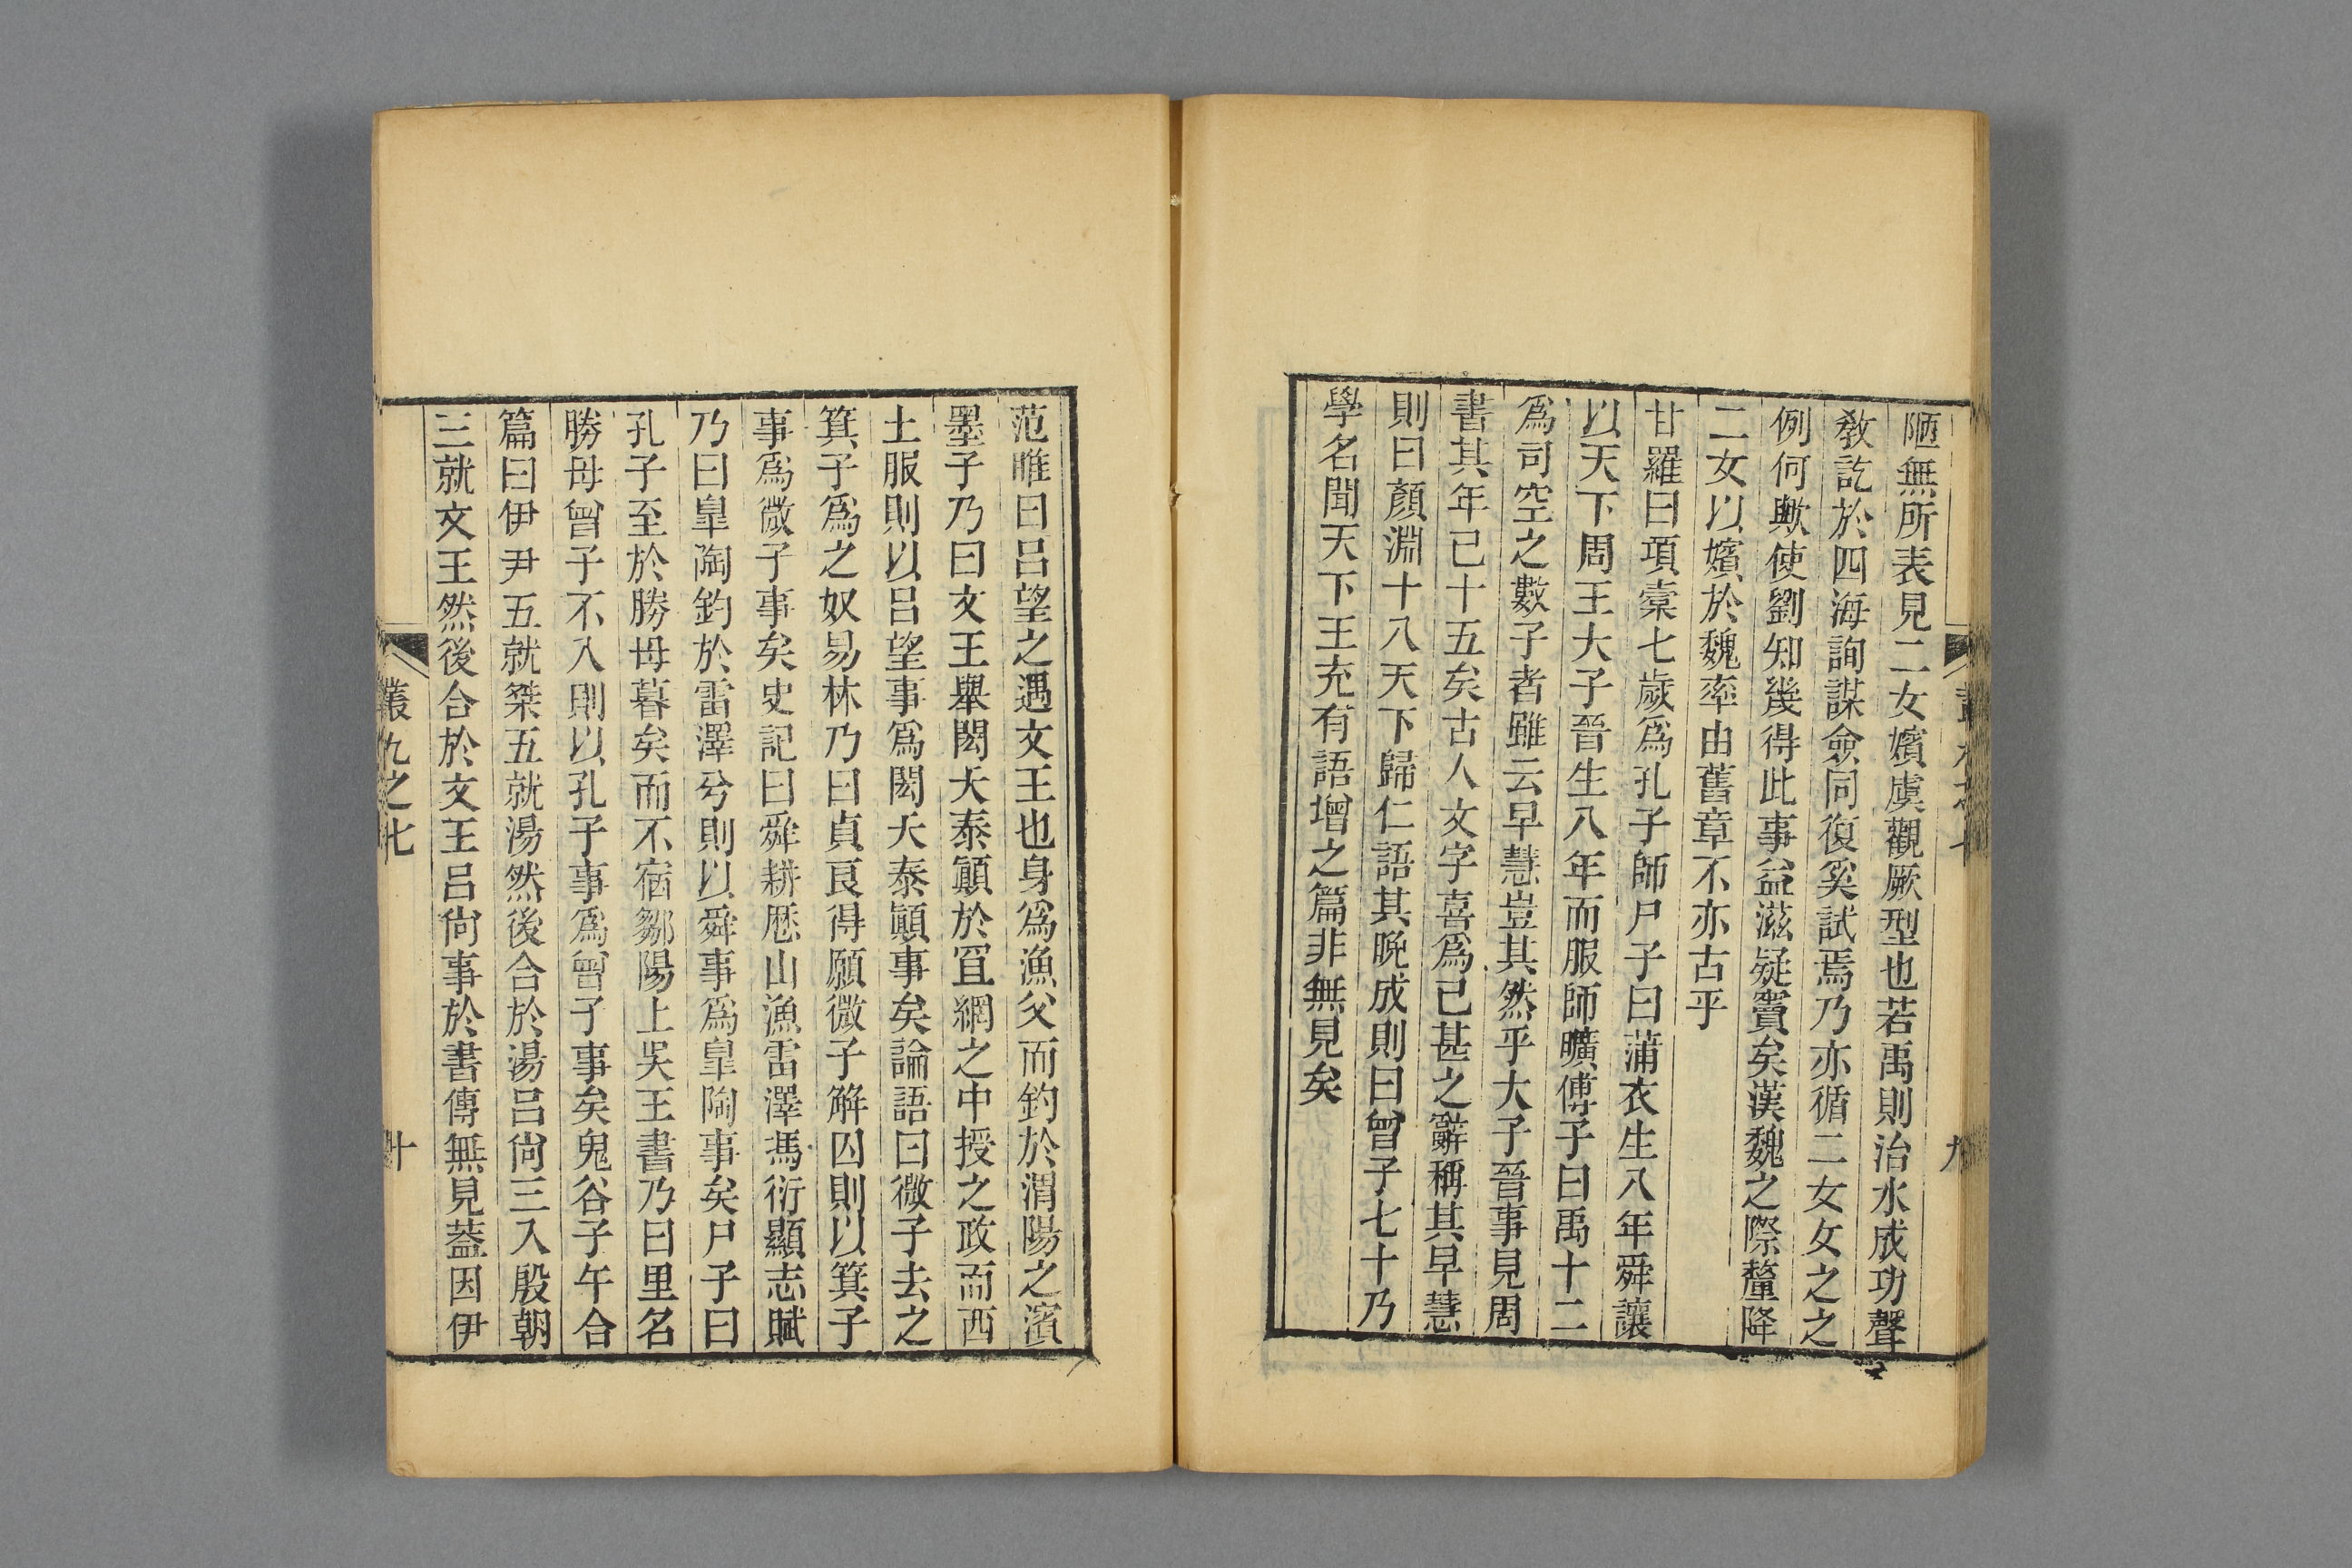 陋無所表見二女嬪虞觀厥型也若禹則治水成功聲
敎訖於四海詢謀僉同復奚試焉乃亦循二女女之之
例何歟使劉知幾得此事益滋疑竇矣漢魏之際釐降
二女以嬪於魏率由舊章不亦古乎
甘羅曰項橐七歲爲孔子師尸子曰蒲衣生八年舜讓
以天下周王大子晉生八年而服師曠傅子曰禹十二
爲司空之數子者雖云早慧豈其然乎大子晉事見周
書其年已十五矣古人文字喜爲已甚之辭稱其早慧
則曰顏淵十八天下歸仁語其晚成則曰曾子七十乃
學名聞天下王充有語增之篇非無見矣
九
范睢曰呂望之遇文王也身爲漁父而釣於渭陽之濱
墨子乃曰文王舉閎夭泰顚於罝網之中授之政而西
土服則以呂望事爲閎夭泰顚事矣論語曰微子去之
箕子爲之奴易林乃曰貞良得願微子解囚則以箕子
事爲微子事矣史記曰舜耕歷山漁雷澤馮衍顯志賦
乃曰皐陶釣於雷澤兮則以舜事爲皐陶事矣尸子曰
孔子至於勝母暮矣而不宿鄒陽上吳王書乃曰里名
勝母曾子不入則以孔子事爲曾子事矣鬼谷子午合
篇曰伊尹五就桀五就湯然後合於湯呂尙三入殷朝
三就文王然後合於文王呂尙事於書傳無見蓋因伊
叢九之七
十